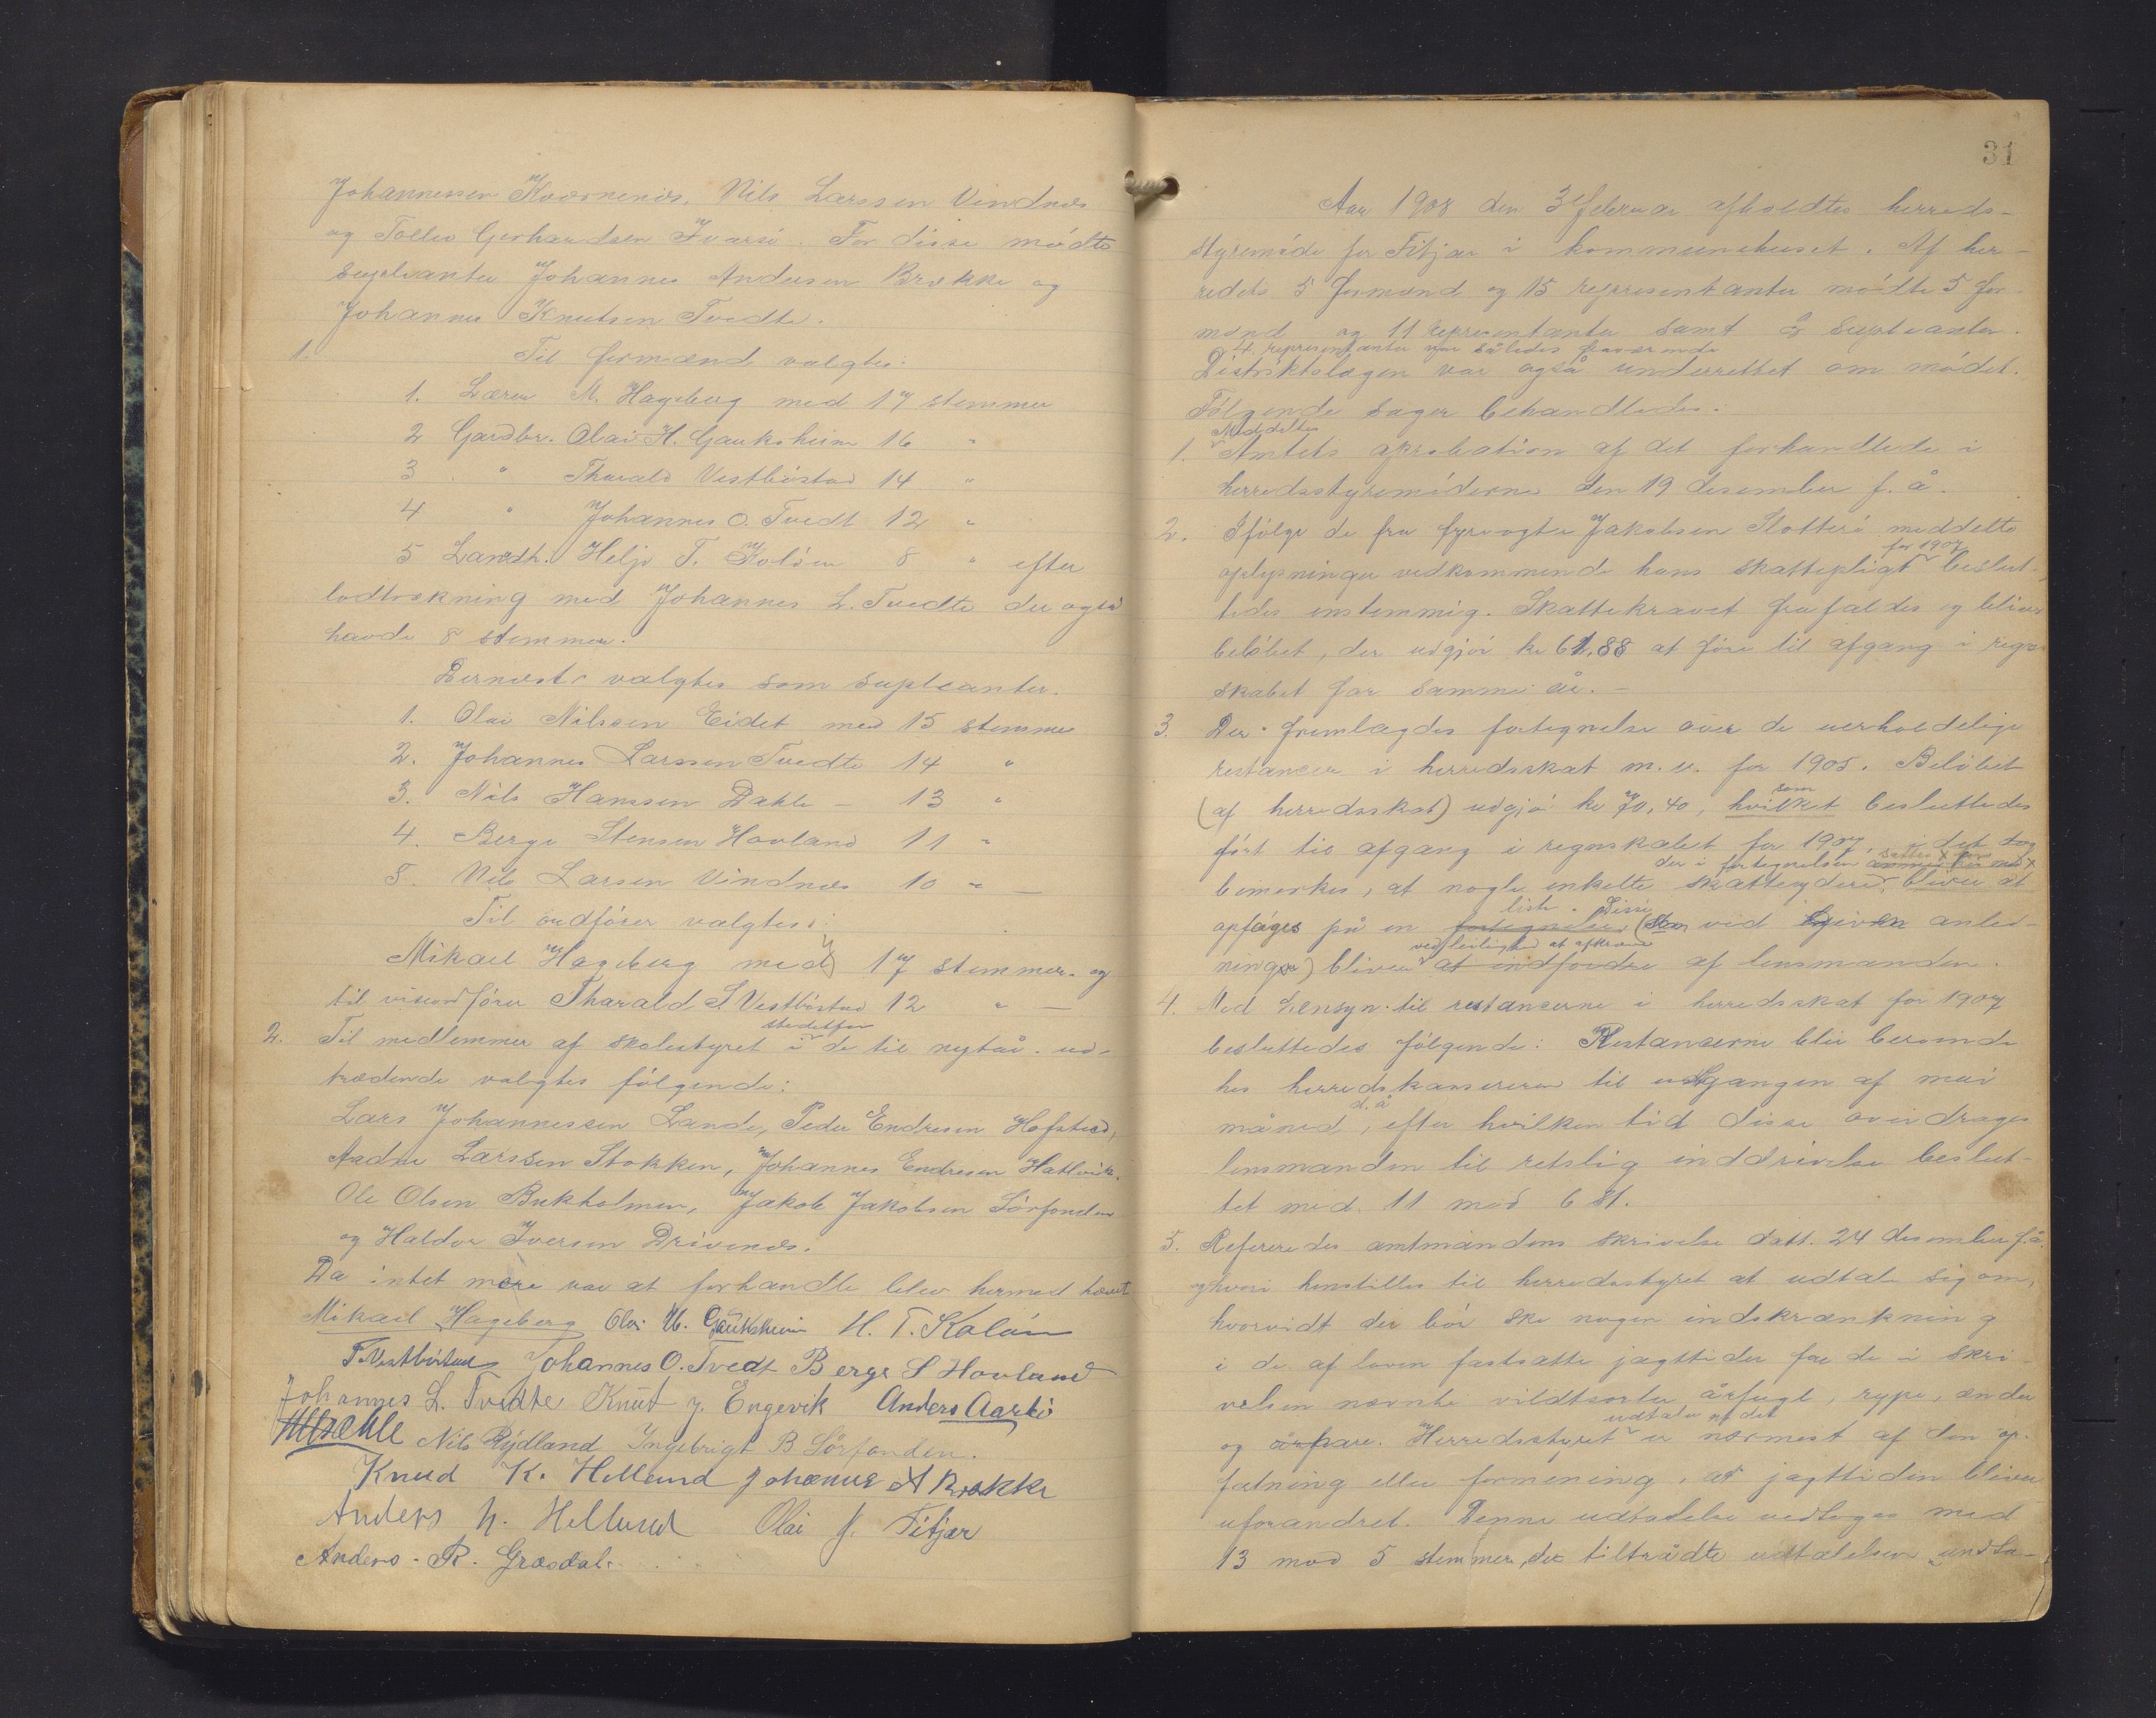 Johannessen Kværnenæs, Nils Larssen Vindnæs
og Tollev Gerhardsen Ivarsø. For disse mødte
supleanter Johannes Andersen Brække og
Johannes Knutsen Tvedte.
1. Til formænd valgtes:
1. Lærer M. Hageberg med 17 stemmer
2 Gardbr. Olai H. Gauksheim 16 "
3 " Tharald Vestbøstad 14 "
4 " Johannes O. Tvedt 12 "
5 Landh. Helje T. Koløen 8 " efter
lodtrækning med Johannes L. Tvedte der også
havde 8 stemmer.
Dernæst valgtes som supleanter.
1. Olai Nilssen Eidet med 15 stemmer
2. Johannes Larssen Tvedte 14 "
3. Nils Hanssen Dahle - 13 "
4. Berge Stensen Hovland 11 "
5. Nils Larsen Vindnæs 10 " —
Til ordfører valgtes:
Mikael Hageberg med 17 stemmer og
til viseordfører Tharald S. Vestbøstad 12 " —
2. Til medlemmer af skolestyret istedetfor de til nytår ud-
trædende valgtes følgende:
Lars Johannessen Lande, Peder Endresen Hofstad,
Aadne Larssen Stokken, Johannes Endresen Hatlevik,
Ole Olsen Bukholmen, Jakob Jakobsen Sørfonden
og Haldor Iversen Drivenes.
Da intet mere var at forhandle blev hermed hævet
Mikael Hageberg Olai H. Gauksheim H. T. Koløen
T. Vestbøstad Johannes O. Tvedt Berge S Hovland
Johannes L. Tvedte Knut J. Engevik Anders Aarbø
Nils Rydland Ingebrigt B Sörfonden.
Knud K. Helland Johannes A Brække
Anders N. Helland Olai J. Fitjar
Anders R. Græsdal.
31
Aar 1908 den 3 februar afholdtes herreds-
styremøde for Fitjar i kommunehuset. Af her-
redets 5 formænd og 15 representanter mødte 5 for-
mænd og 11 representanter samt 2 supleanter.
4 representanter var således fraværende
Distriktslægen var også underrettet om mødet.
Følgende sager behandledes.
1. Meddeltes Amtets aprobation af det forhandlede i
herredsstyremøderne den 19 desember f. å.
2. Ifølge de fra fyrvogter Jakobsen Slotterø meddelte
oplysninger vedkommende hans skattepligt for 1907 beslut-
tedes enstemmig. Skattekravet frafaldes og bliver
beløbet, der udgjør kr 61,88 at føre til afgang i regn-
skabet for samme år. -
3. Der fremlagdes fortegnelse over de uerholdelige
restancer i herredsskat m. v. for 1905. Beløbet
(af herredsskat) udgjør kr 70,40, hvilket som besluttedes
ført til afgang i regnskabet for 1907, i det dog
der i fortegnelsen
bemerkes, at nogle enkelte skatteydere, bliver at
opføres på en fortegnelse liste. Disse (som ved given anled-
ninger) bliver ved leilighed at afkræve at indfordre af lensmanden.
4. Med hensyn til restancerne i herredsskat for 1907
besluttedes følgende: Restancerne blir beroende
hos herredskassereren til udgangen af mai
måned d. å, efter hvilken tid disse overdrages
lensmanden til retslig inddrivelse beslut-
tet med 11 mod 6 st.
5. Refereredes amtmandens skrivelse datt. 24 desember f. å.
og hvori henstilles til herredsstyret at udtale sig om,
hvorvidt der bør ske nogen indskrænkning
i de af loven fastsatte jagttider for de i skri-
velsen nævnte vildtsorter årfugl, rype, ænder
og hare. Herredsstyret udtaler at det er nærmest af den op-
fatning eller formening, at jagttiden bliver
uforandret. Denne udtalelse vedtoges med
13 mod 5 stemmer, der tiltrådte udtalelsen undta-